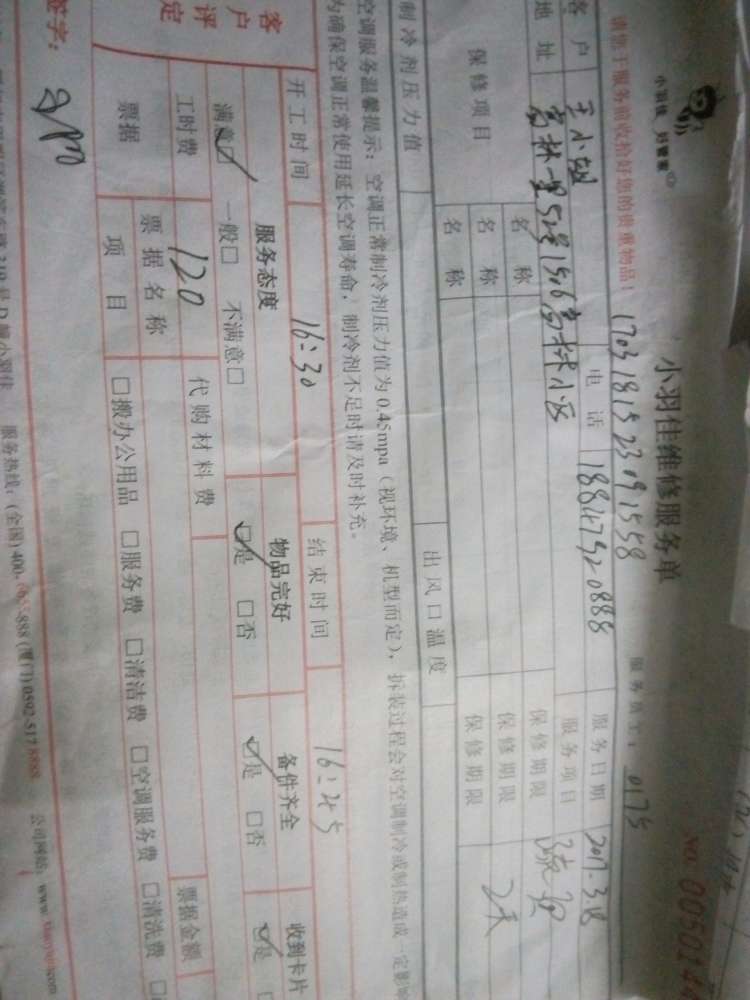 小羽佳 好管家
小羽佳维修服务单
No. 005014
请您于服务前收拾好您的贵重物品！
1703181523091558
服务员工： 0175
客户 王小姐 电话 18847920888 服务日期 2017-3.18
地址 富林一里52号1506富林小区 服务项目 疏
保修项目
名称 保修期限
名称 保修期限 2天
名称 保修期限
制冷剂压力值 出风口温度
空调服务温馨提示：空调正常制冷剂压力值为0.45mpa（视环境、机型而定），拆装过程会对空调制冷或制热造成一定影响
为确保空调正常使用延长空调寿命，制冷剂不足时请及时补充。
开工时间 16:30 结束时间 16:45
客户评定
服务态度 物品完好 备件齐全 收到卡片
满意☑ 一般□ 不满意□ ☑是 □否 ☑是 □否 ☑是
工时费 120 代购材料费
票据 票据名称 票据金额
项目 □搬办公用品 □服务费 □清洁费 □空调服务费 □清洗费
签字：
服务热线：(全国)400- -888 (厦门)0592-517 8888 公司网站：www. .com